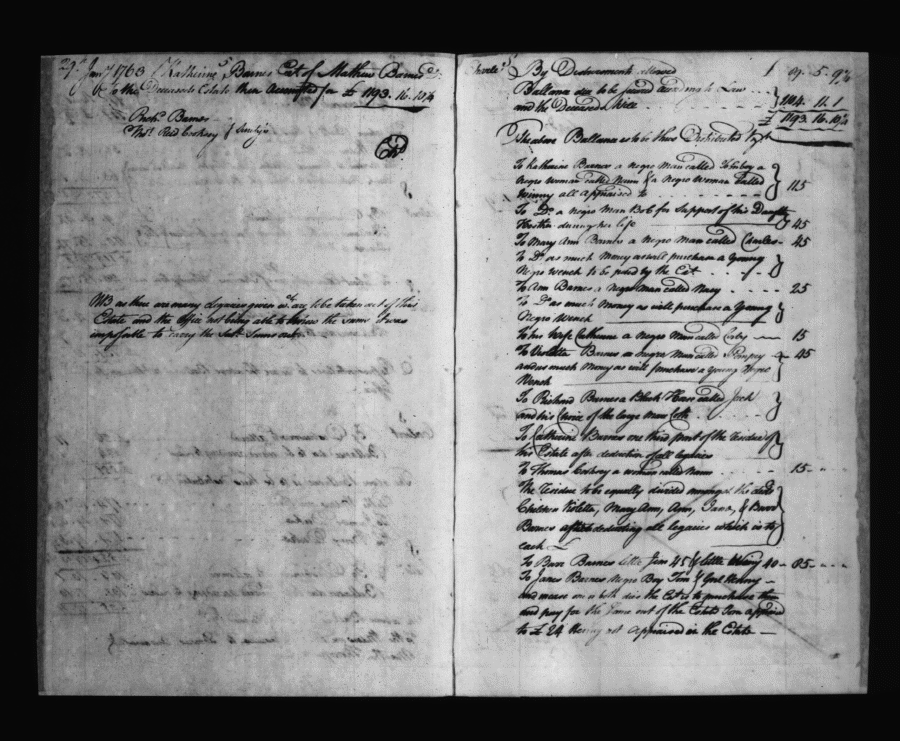 29th Jany 1763 Katherine Barnes Ext of Mathew Barnes
to the Deceaseds Estate then Accounted for £ 1193. 16. 10¼
Richd Barnes
Thos Reid Cockey } Suretys
NB as there are many Legacies given wch are to be taken out of this
Estate and the Office not being able to know the same it was
impossible to carry the Sums out
By Disbursements allowed 9. 5. 9¼
Ballance due to be paid according to Law
and the Deceaseds Will 1104. 11. 1
£ 1193. 16. 10¼
The above Ballance is to be thus Distributed Vizt
To Katherine Barnes a Negro man called Toby a
Negro woman called Nann & a Negro Woman Called
Winny all appraised to 115
To Do a Negro Man Bob for Support of his Daughter
Hester during her life 45
To Mary Ann Barnes a Negro Man called Charles 45
To Do as much Money as will purchase a Young
Negro Wench to be paid by the Ext
To Ann Barnes a Negro Man called Harry 25
To Do as much Money as will purchase a Young
Negro Wench
To his Wife Catherine a Negro Man called Caby 15
To Violetta Barnes a Negro Man called Pompey 45
and as much Money as will purchase a Young Negro
Wench
To Richard Barnes a Black Horse called Jack
and his Choice of the large Mare Colts
To Catherine Barnes one third part of the residue of
his Estate after deduction of all legacies
To Thomas Cockey a woman called Nann 15
The Residue to be equally divided amongst the
Children Violetta, Mary Ann, Ann, Jana, & Burr
Barnes after deducting all legacies which is to
each £
To Burr Barnes little Jim 45 & little 40 85
To Janes Barnes Negro Boy Tom & Girl Henny
and in case one or both dies the Ext is to purchase them
and pay for the same out of the Estate Tom appraised
to £ 24 Henny not appraised in the Estate